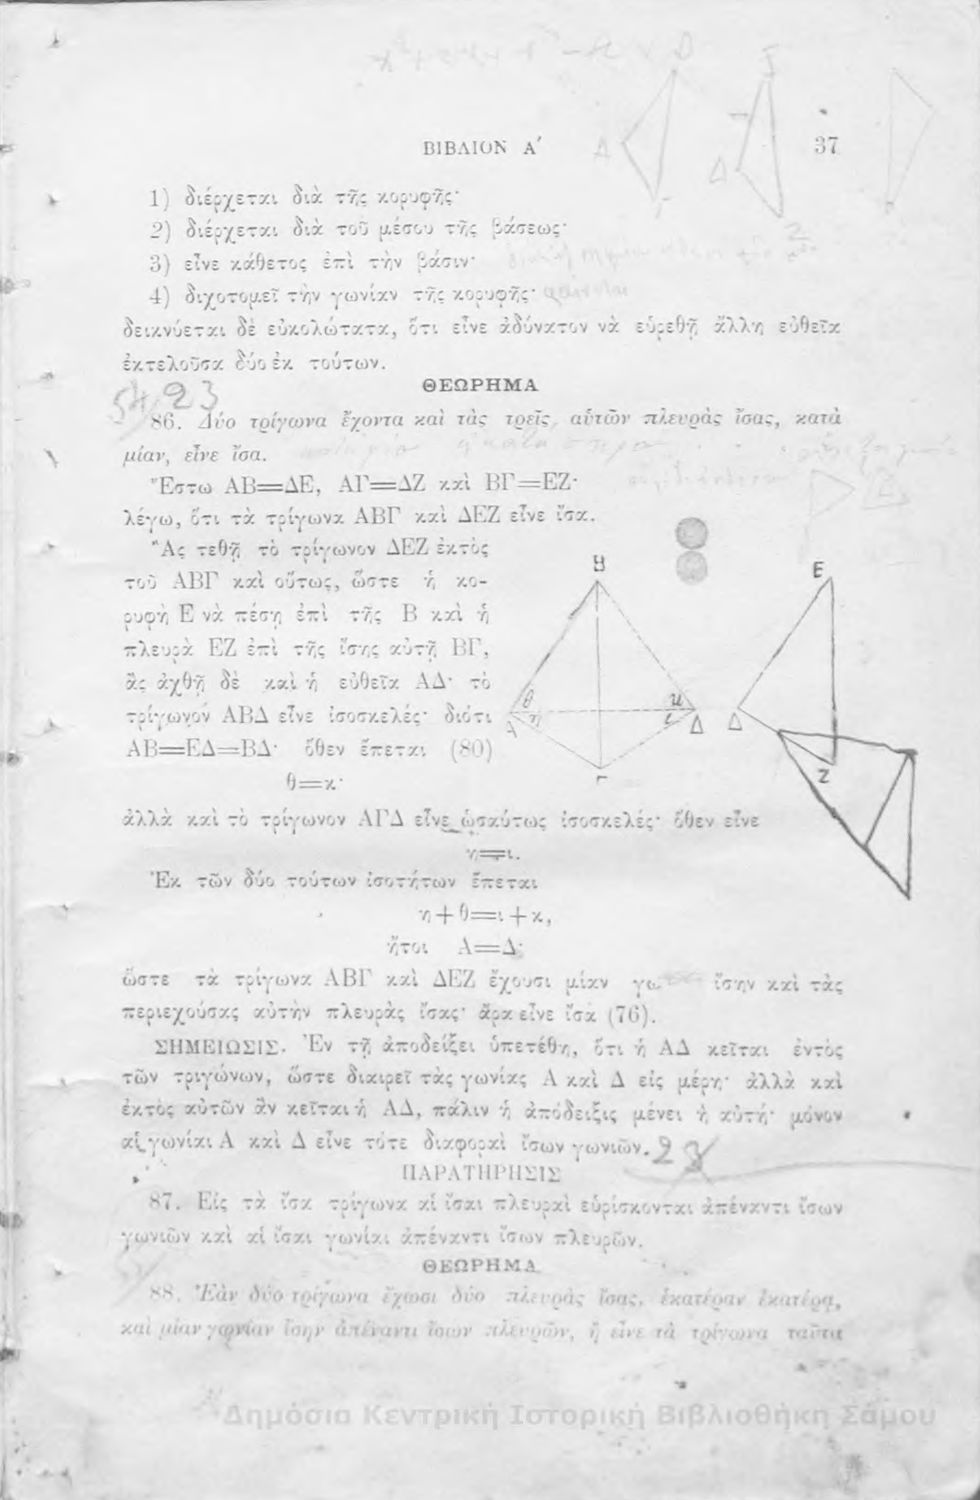 ΒΙΒΛΙΟΝ Α΄ 37
1) διέρχεται διὰ τῆς κορυφῆς·
2) διέρχεται διὰ τοῦ μέσου τῆς βάσεως·
3) εἶνε κάθετος ἐπὶ τὴν βάσιν·
4) διχοτομεῖ τὴν γωνίαν τῆς κορυφῆς·
δεικνύεται δὲ εὐκολώτατα, ὅτι εἶνε ἀδύνατον νὰ εὑρεθῇ ἄλλη εὐθεῖα
ἐκτελοῦσα δύο ἐκ τούτων.
ΘΕΩΡΗΜΑ
54 23
86. Δύο τρίγωνα ἔχοντα καὶ τὰς τρεῖς αὐτῶν πλευρὰς ἴσας, κατὰ
μίαν, εἶνε ἴσα.
Ἔστω ΑΒ=ΔΕ, ΑΓ=ΔΖ καὶ ΒΓ=ΕΖ·
λέγω, ὅτι τὰ τρίγωνα ΑΒΓ καὶ ΔΕΖ εἶνε ἴσα.
Ἂς τεθῇ τὸ τρίγωνον ΔΕΖ ἐκτὸς
τοῦ ΑΒΓ καὶ οὕτως, ὥστε ἡ κο-
ρυφὴ Ε νὰ πέσῃ ἐπὶ τῆς Β καὶ ἡ
πλευρὰ ΕΖ ἐπὶ τῆς ἴσης αὐτῇ ΒΓ,
ἂς ἀχθῇ δὲ καὶ ἡ εὐθεῖα ΑΔ· τὸ
τρίγωνον ΑΒΔ εἶνε ἰσοσκελές· διότι
ΑΒ=ΕΔ=ΒΔ· ὅθεν ἕπεται (80)
θ=κ·
Β Ε
θ η κ ι
Α Δ Δ
Γ Ζ
ἀλλὰ καὶ τὸ τρίγωνον ΑΓΔ εἶνε ὡσαύτως ἰσοσκελές· ὅθεν εἶνε
η=ι.
Ἐκ τῶν δύο τούτων ἰσοτήτων ἕπεται
η+θ=ι+κ,
ἤτοι Α=Δ·
ὥστε τὰ τρίγωνα ΑΒΓ καὶ ΔΕΖ ἔχουσι μίαν ἴσην καὶ τὰς
περιεχούσας αὐτὴν πλευρὰς ἴσας· ἄρα εἶνε ἴσα (76).
ΣΗΜΕΙΩΣΙΣ. Ἐν τῇ ἀποδείξει ὑπετέθη, ὅτι ἡ ΑΔ κεῖται ἐντὸς
τῶν τριγώνων, ὥστε διαιρεῖ τὰς γωνίας Α καὶ Δ εἰς μέρη· ἀλλὰ καὶ
ἐκτὸς αὐτῶν ἂν κεῖται ἡ ΑΔ, πάλιν ἡ ἀπόδειξις μένει ἡ αὐτή· μόνον
αἱ γωνίαι Α καὶ Δ εἶνε τότε διαφοραὶ ἴσων γωνιῶν.
ΠΑΡΑΤΗΡΗΣΙΣ
87. Εἰς τὰ ἴσα τρίγωνα αἱ ἴσαι πλευραὶ εὑρίσκονται ἀπέναντι ἴσων
γωνιῶν καὶ αἱ ἴσαι γωνίαι ἀπέναντι ἴσων πλευρῶν.
ΘΕΩΡΗΜΑ
88. Ἐὰν δύο τρίγωνα ἔχωσι δύο πλευρὰς ἴσας, ἑκατέραν ἑκατέρᾳ,
καὶ μίαν γωνίαν ἴσην ἀπέναντι ἴσων πλευρῶν, ἢ εἶνε τὰ τρίγωνα ταῦτα
Δημόσια Κεντρική Ιστορική Βιβλιοθήκη Σάμου